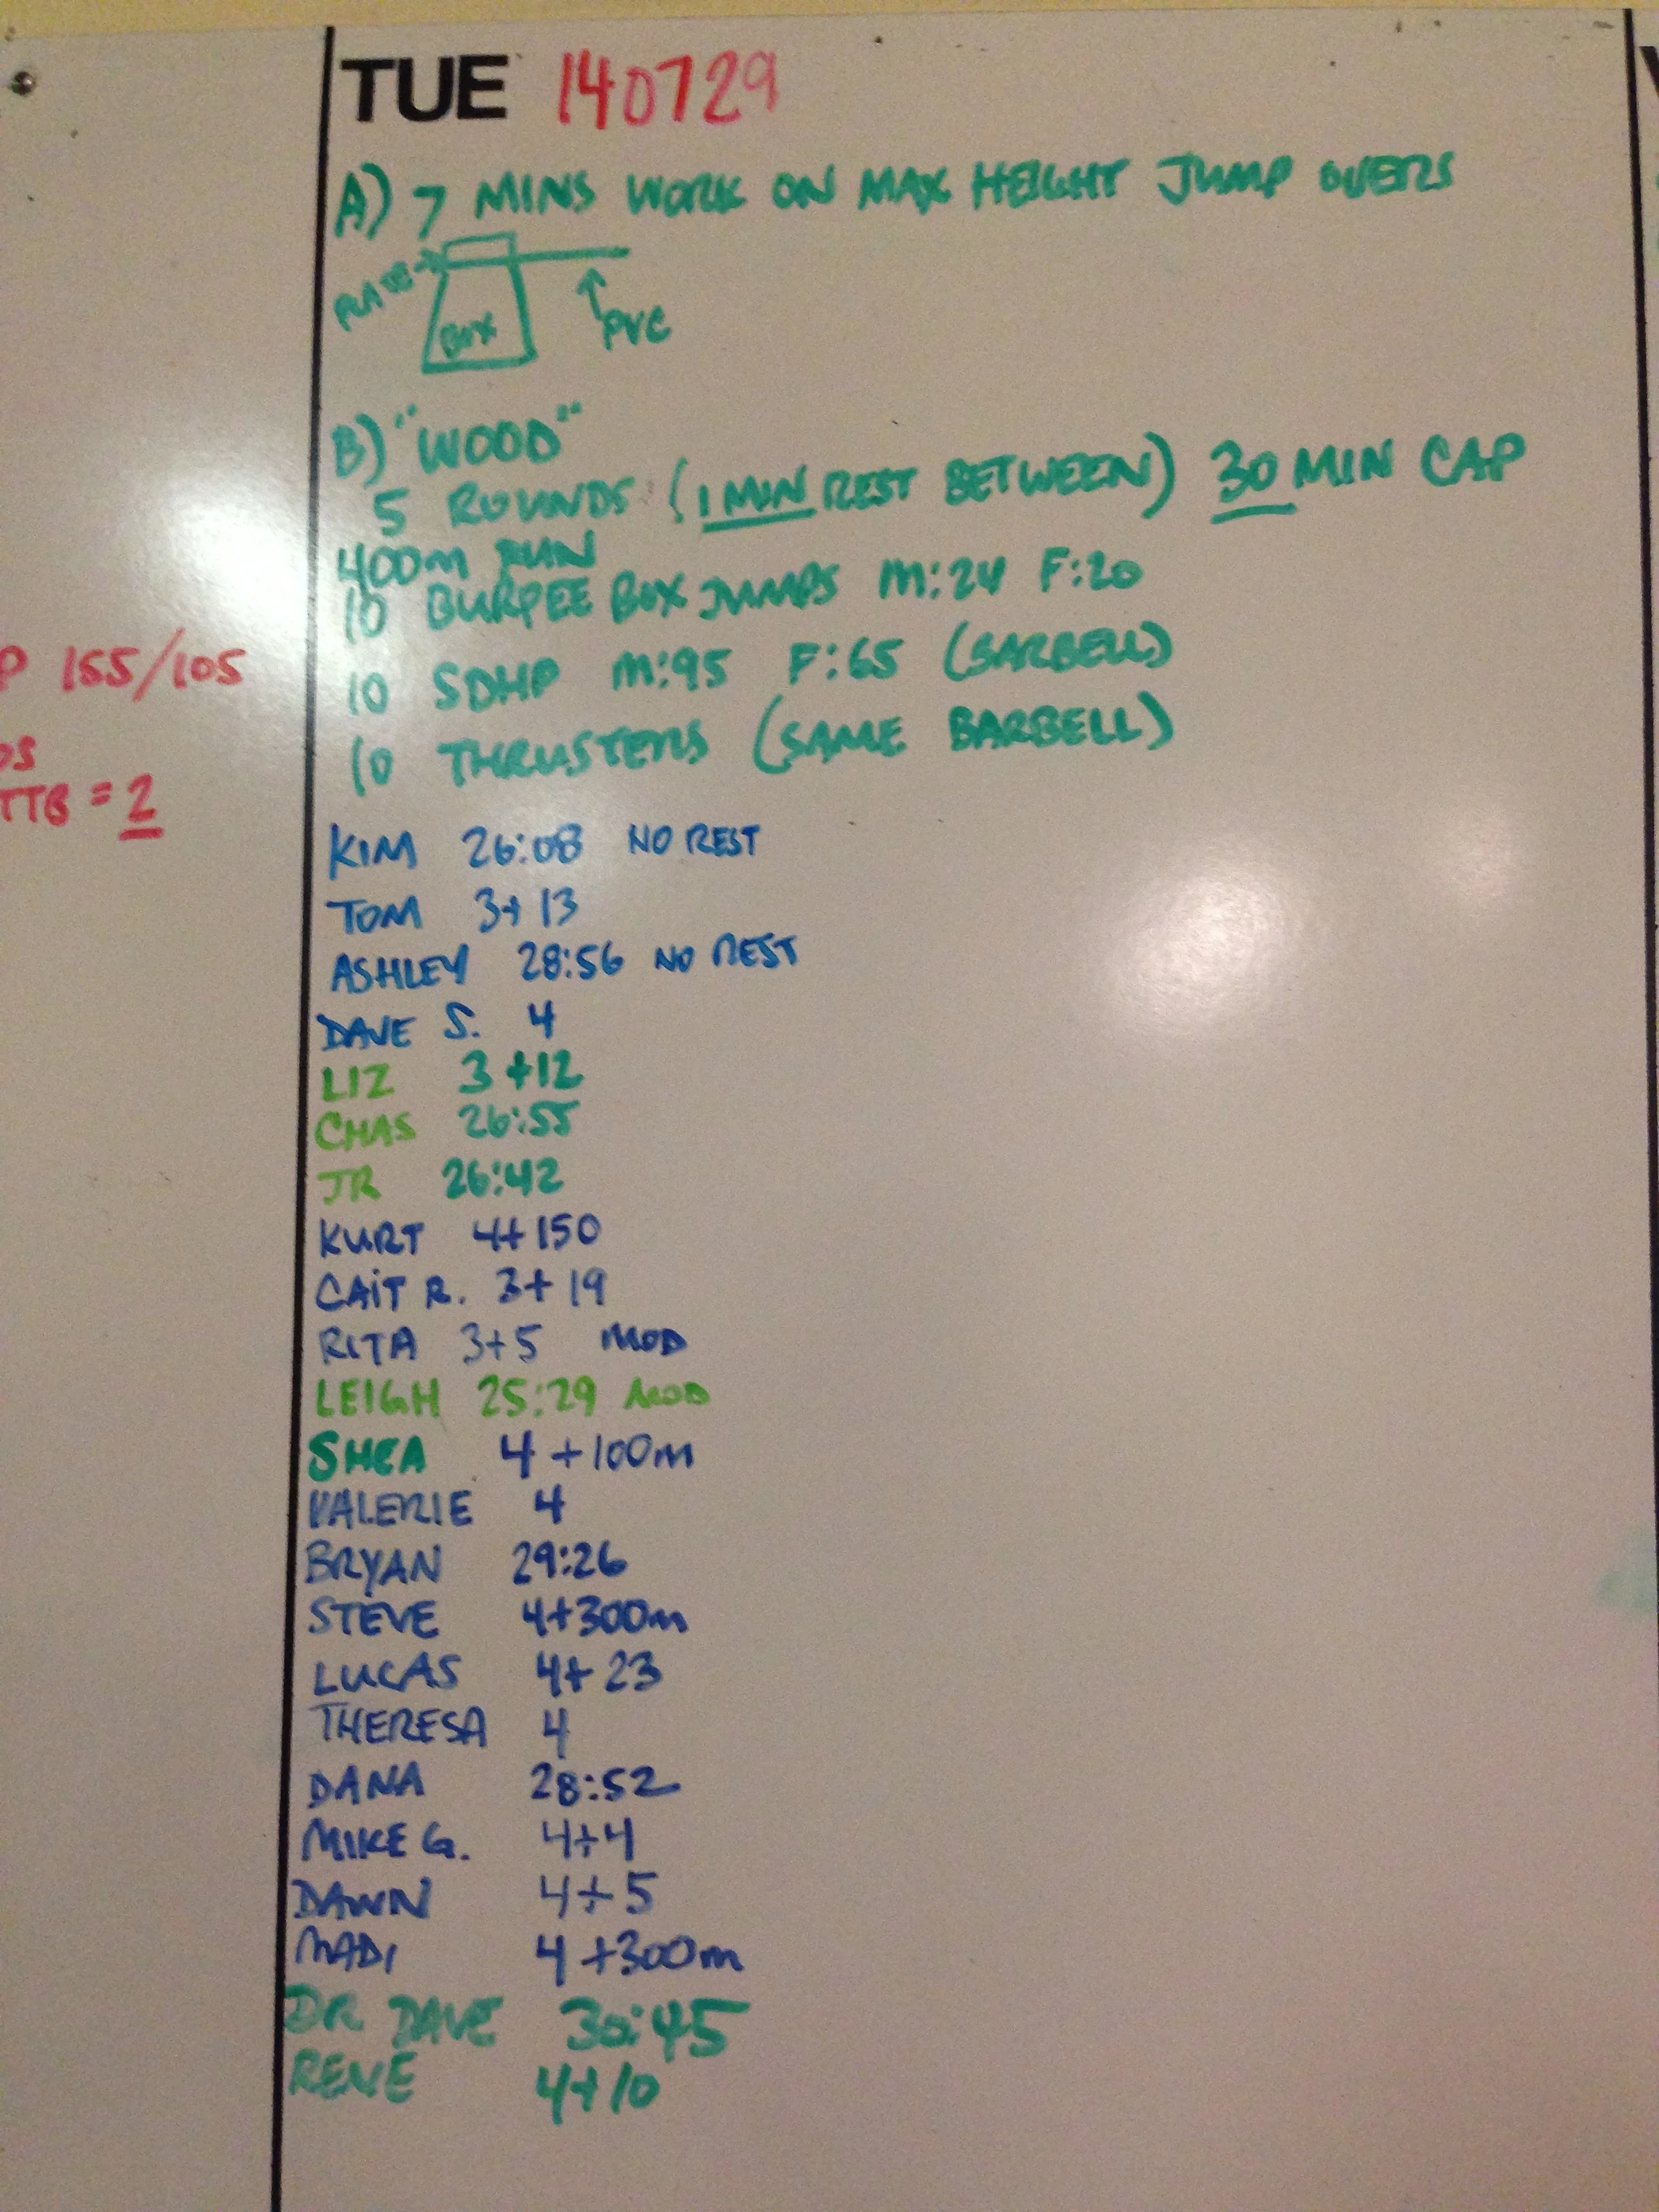 TUE 140729
A) 7 MINS WORK ON MAX HEIGHT JUMP OVERS
PLATE
BOX
PVC
B) "WOOD"
5 ROUNDS (1 MIN REST BETWEEN) 30 MIN CAP
400m RUN
10 BURPEE BOX JUMPS M:24 F:20
10 SDHP M:95 F:65 (BARBELL)
10 THRUSTERS (SAME BARBELL)
P 155/105
OS
TTB = 2
KIM 26:08 NO REST
TOM 3+13
ASHLEY 28:56 NO REST
DAVE S. 4
LIZ 3+12
CHAS 26:55
JR 26:42
KURT 4+150
CAIT R. 3+19
RITA 3+5 MOD
LEIGH 25:29 MOD
SHEA 4+100m
VALERIE 4
BRYAN 29:26
STEVE 4+300m
LUCAS 4+23
THERESA 4
DANA 28:52
MIKE G. 4+4
DAWN 4+5
MADI 4+300m
DR DAVE 30:45
RENE 4+10